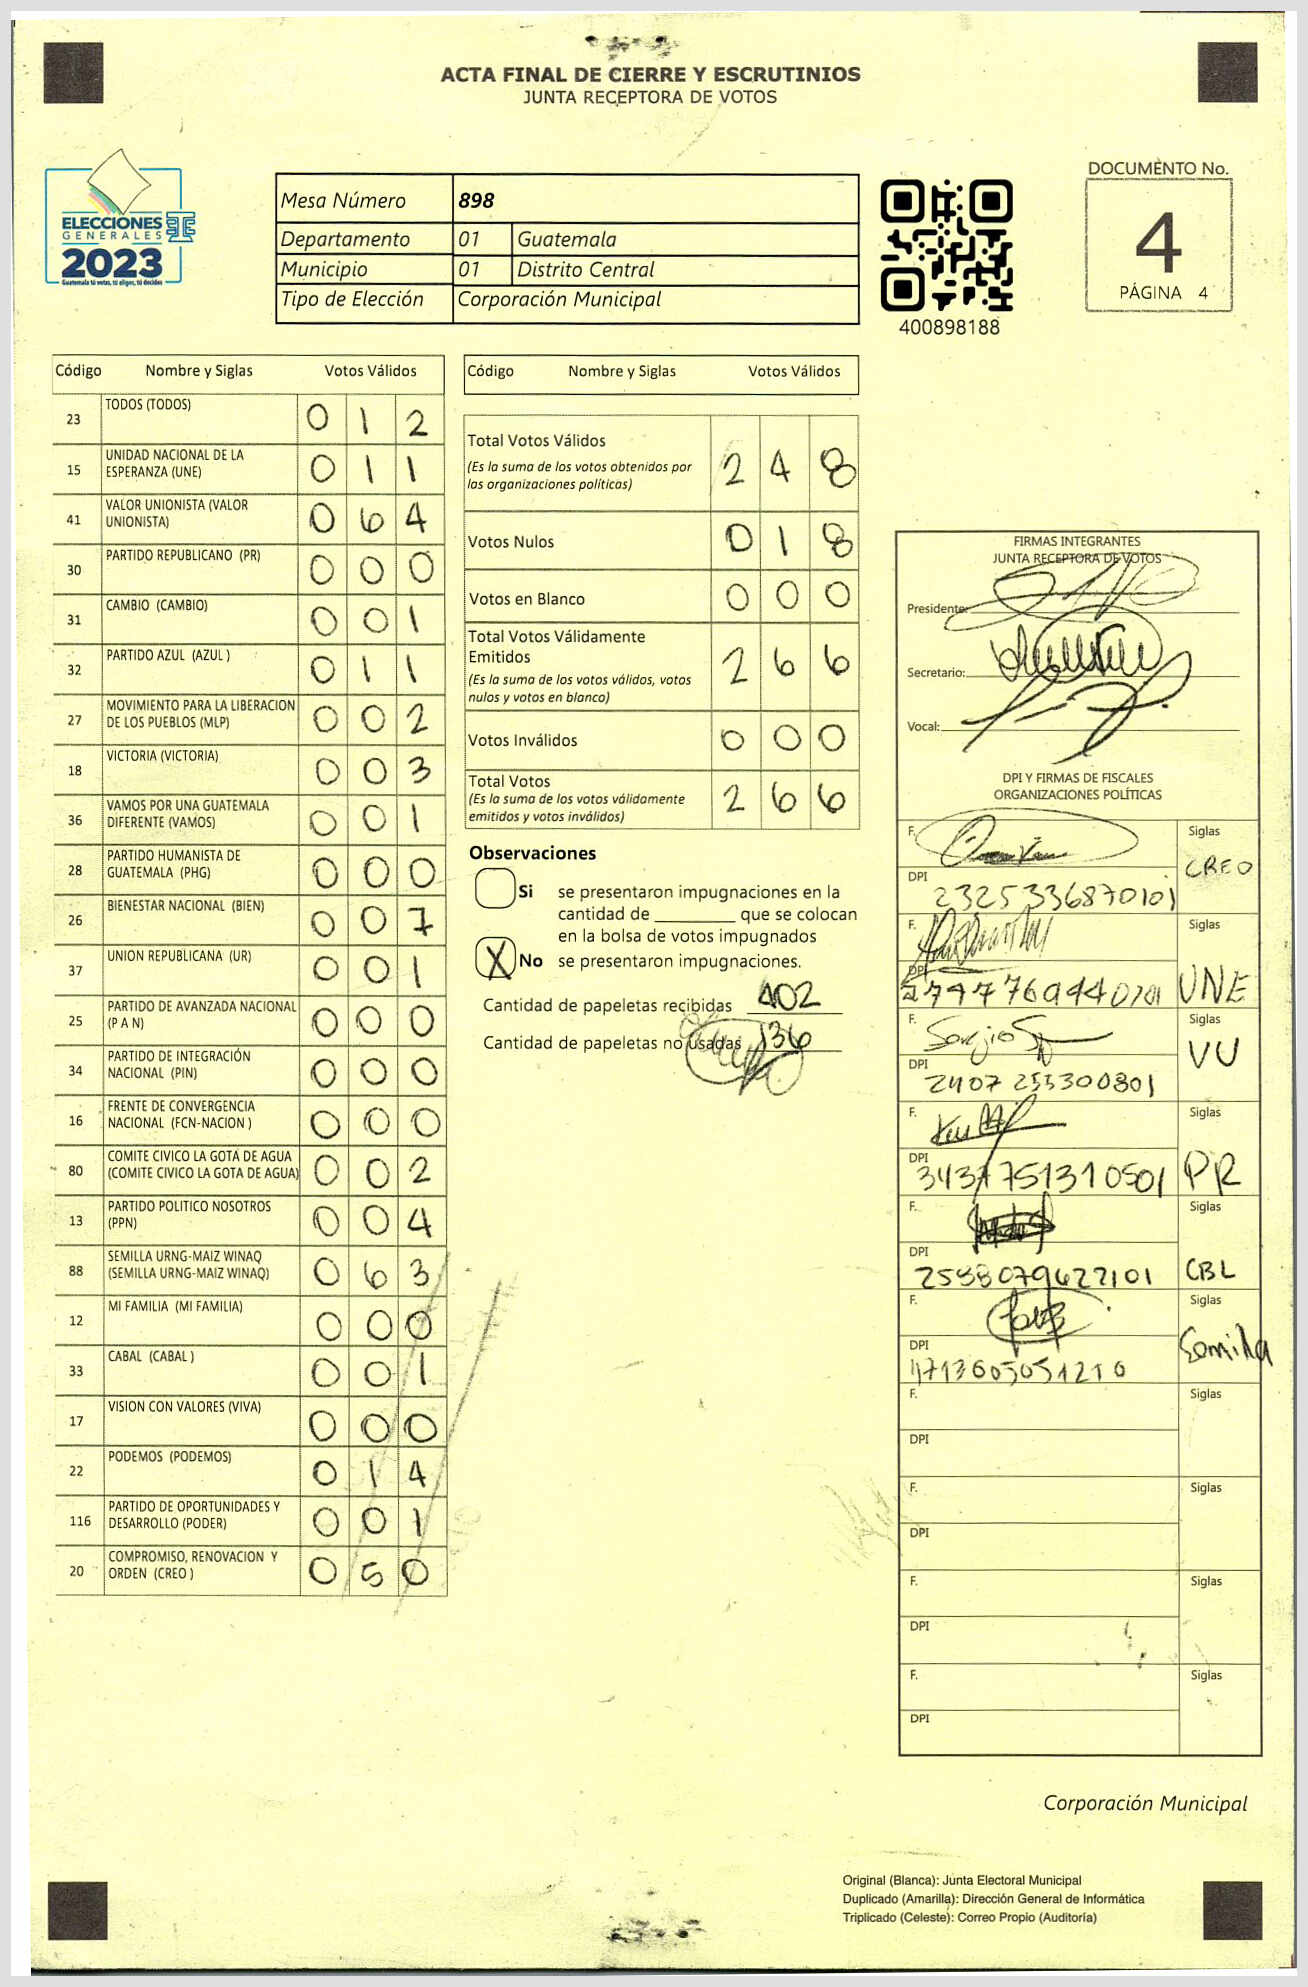 ACTA FINAL DE CIERRE Y ESCRUTINIOS
JUNTA RECEPTORA DE VOTOS
ELECCIONES
GENERALES
2023
Guatemala tú votas, tú eliges, tú decides
TSE
Mesa Número 898
Departamento 01 Guatemala
Municipio 01 Distrito Central
Tipo de Elección Corporación Municipal
400898188
DOCUMENTO No.
4
PÁGINA 4
Código Nombre y Siglas Votos Válidos
23 TODOS (TODOS) 0 1 2
15 UNIDAD NACIONAL DE LA
ESPERANZA (UNE) 0 1 1
41 VALOR UNIONISTA (VALOR
UNIONISTA) 0 6 4
30 PARTIDO REPUBLICANO (PR) 0 0 0
31 CAMBIO (CAMBIO) 0 0 1
32 PARTIDO AZUL (AZUL ) 0 1 1
27 MOVIMIENTO PARA LA LIBERACION
DE LOS PUEBLOS (MLP) 0 0 2
18 VICTORIA (VICTORIA) 0 0 3
36 VAMOS POR UNA GUATEMALA
DIFERENTE (VAMOS) 0 0 1
28 PARTIDO HUMANISTA DE
GUATEMALA (PHG) 0 0 0
26 BIENESTAR NACIONAL (BIEN) 0 0 7
37 UNION REPUBLICANA (UR) 0 0 1
25 PARTIDO DE AVANZADA NACIONAL
(P A N) 0 0 0
34 PARTIDO DE INTEGRACIÓN
NACIONAL (PIN) 0 0 0
16 FRENTE DE CONVERGENCIA
NACIONAL (FCN-NACION ) 0 0 0
80 COMITE CIVICO LA GOTA DE AGUA
(COMITE CIVICO LA GOTA DE AGUA) 0 0 2
13 PARTIDO POLITICO NOSOTROS
(PPN) 0 0 4
88 SEMILLA URNG-MAIZ WINAQ
(SEMILLA URNG-MAIZ WINAQ) 0 6 3
12 MI FAMILIA (MI FAMILIA) 0 0 0
33 CABAL (CABAL ) 0 0 1
17 VISION CON VALORES (VIVA) 0 0 0
22 PODEMOS (PODEMOS) 0 1 4
116 PARTIDO DE OPORTUNIDADES Y
DESARROLLO (PODER) 0 0 1
20 COMPROMISO, RENOVACION Y
ORDEN (CREO ) 0 5 0
Código Nombre y Siglas Votos Válidos
Total Votos Válidos 2 4 8
(Es la suma de los votos obtenidos por
las organizaciones políticas)
Votos Nulos 0 1 8
Votos en Blanco 0 0 0
Total Votos Válidamente
Emitidos 2 6 6
(Es la suma de los votos válidos, votos
nulos y votos en blanco)
Votos Inválidos 0 0 0
Total Votos 2 6 6
(Es la suma de los votos válidamente
emitidos y votos inválidos)
Observaciones
Si se presentaron impugnaciones en la
cantidad de ________ que se colocan
en la bolsa de votos impugnados
X No se presentaron impugnaciones.
Cantidad de papeletas recibidas 402
Cantidad de papeletas no usadas 136
FIRMAS INTEGRANTES
JUNTA RECEPTORA DE VOTOS
Presidente:
Secretario:
Vocal:
DPI Y FIRMAS DE FISCALES
ORGANIZACIONES POLÍTICAS
F. Siglas
CREO
DPI
2325336870101
F. Siglas
DPI
UNE
F. Siglas
VU
DPI
2407 255300801
F. Siglas
DPI
PR
F. Siglas
DPI
CBL
F. Siglas
Semilla
DPI
F. Siglas
DPI
F. Siglas
DPI
F. Siglas
DPI
F. Siglas
DPI
Corporación Municipal
Original (Blanca): Junta Electoral Municipal
Duplicado (Amarilla): Dirección General de Informática
Triplicado (Celeste): Correo Propio (Auditoría)